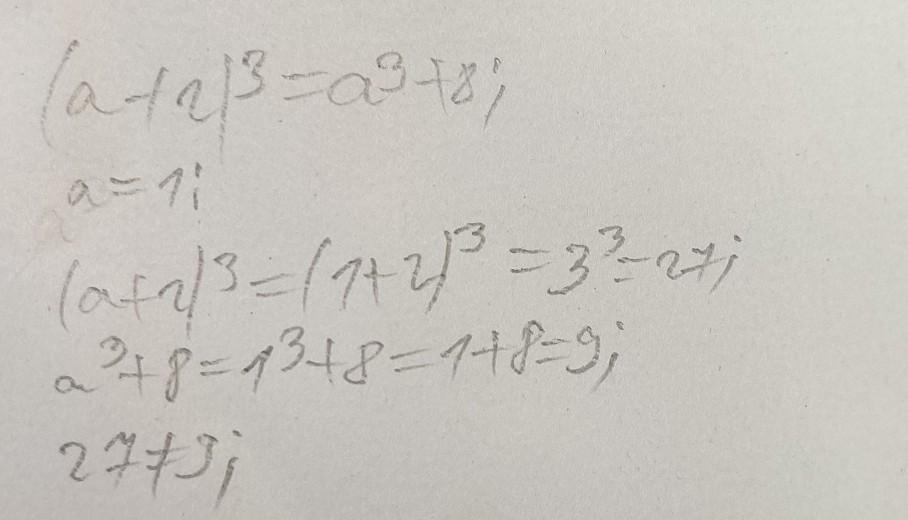 (a+2)³=a³+8;
a=1;
(a+2)³=(1+2)³=3³=27;
a³+8=1³+8=1+8=9;
27≠9;